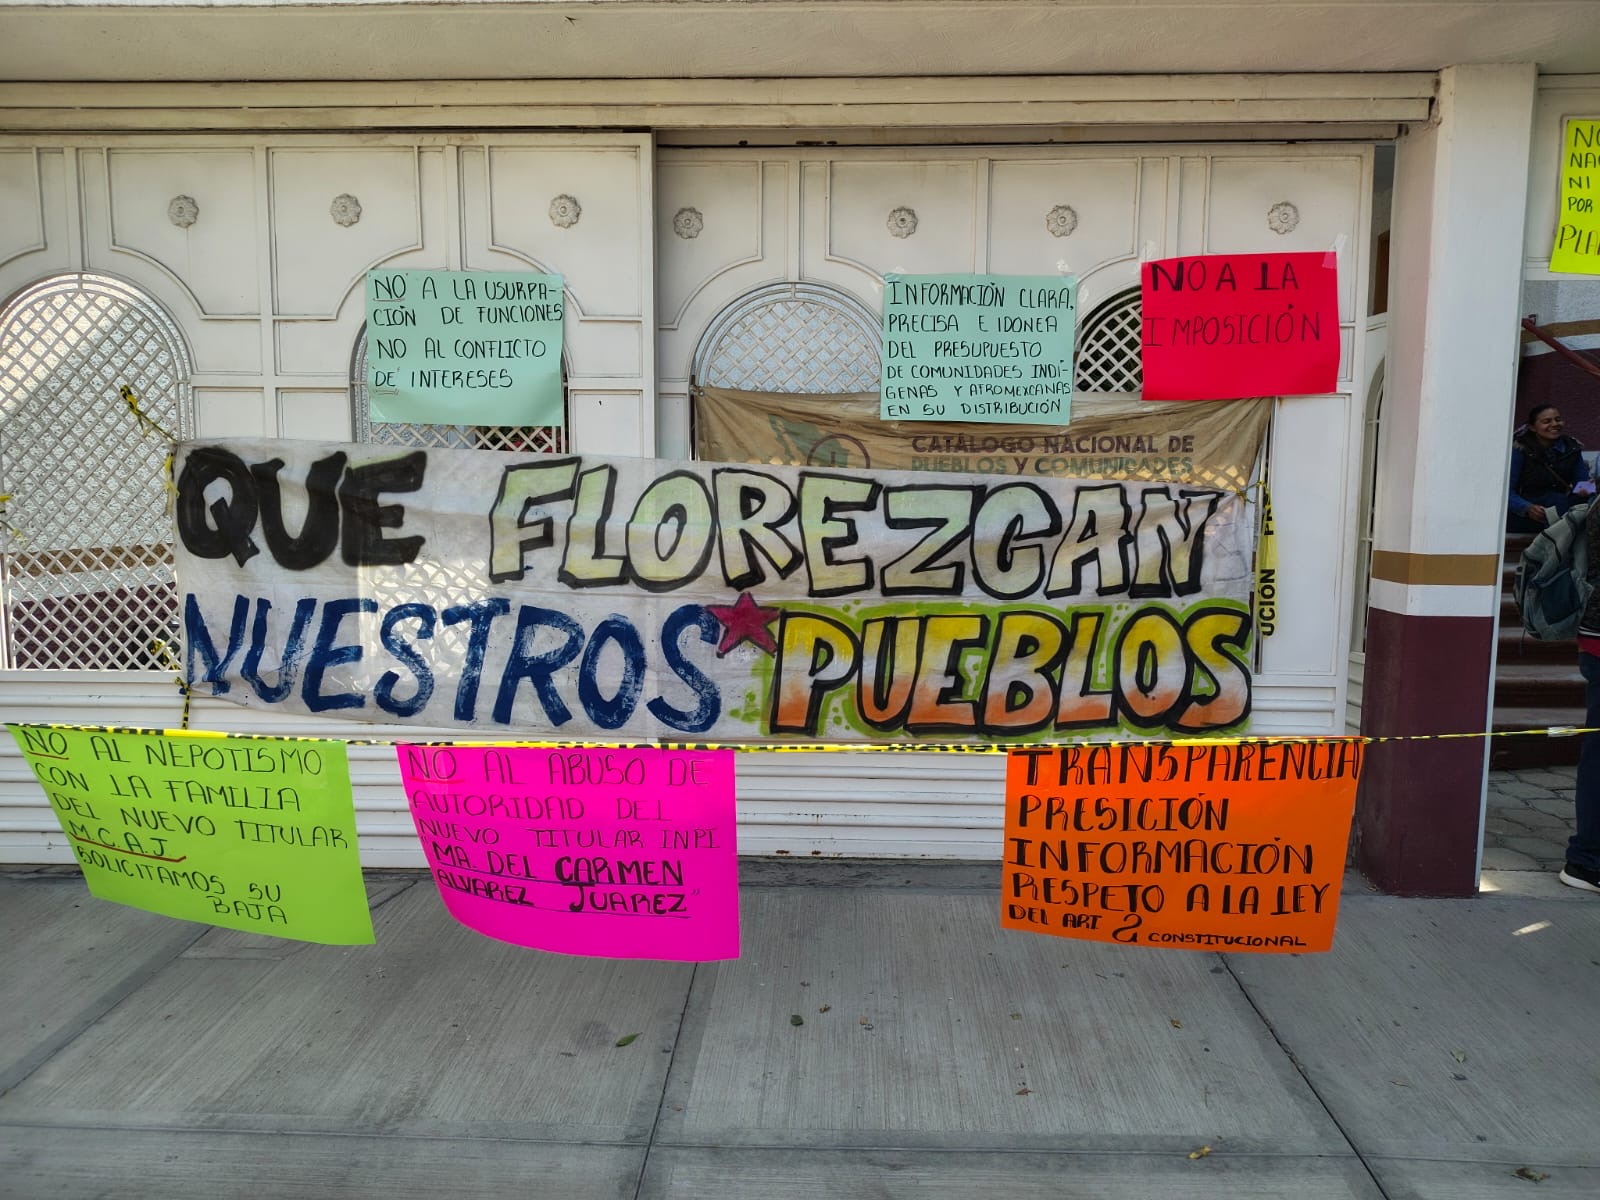 NO A LA USURPA-
CIÓN DE FUNCIONES
NO AL CONFLICTO
DE INTERESES
INFORMACIÓN CLARA,
PRECISA E IDONEA
DEL PRESUPUESTO
DE COMUNIDADES INDÍ-
GENAS Y AFROMEXCANAS
EN SU DISTRIBUCIÓN
NO A LA
IMPOSICIÓN
NO
NA
NI
POR
PLA
CATÁLOGO NACIONAL DE
PUEBLOS Y COMUNIDADES
QUE FLOREZCAN
NUESTROS PUEBLOS
UCIÓN
NO AL NEPOTISMO
CON LA FAMILIA
DEL NUEVO TITULAR
M.C.A.J
SOLICITAMOS SU
BAJA
NO AL ABUSO DE
AUTORIDAD DEL
NUEVO TITULAR INPI
"MA. DEL CARMEN
ALVAREZ JUAREZ"
TRANSPARENCIA
PRESICIÓN
INFORMACIÓN
RESPETO A LA LEY
DEL ART 2 CONSTITUCIONAL